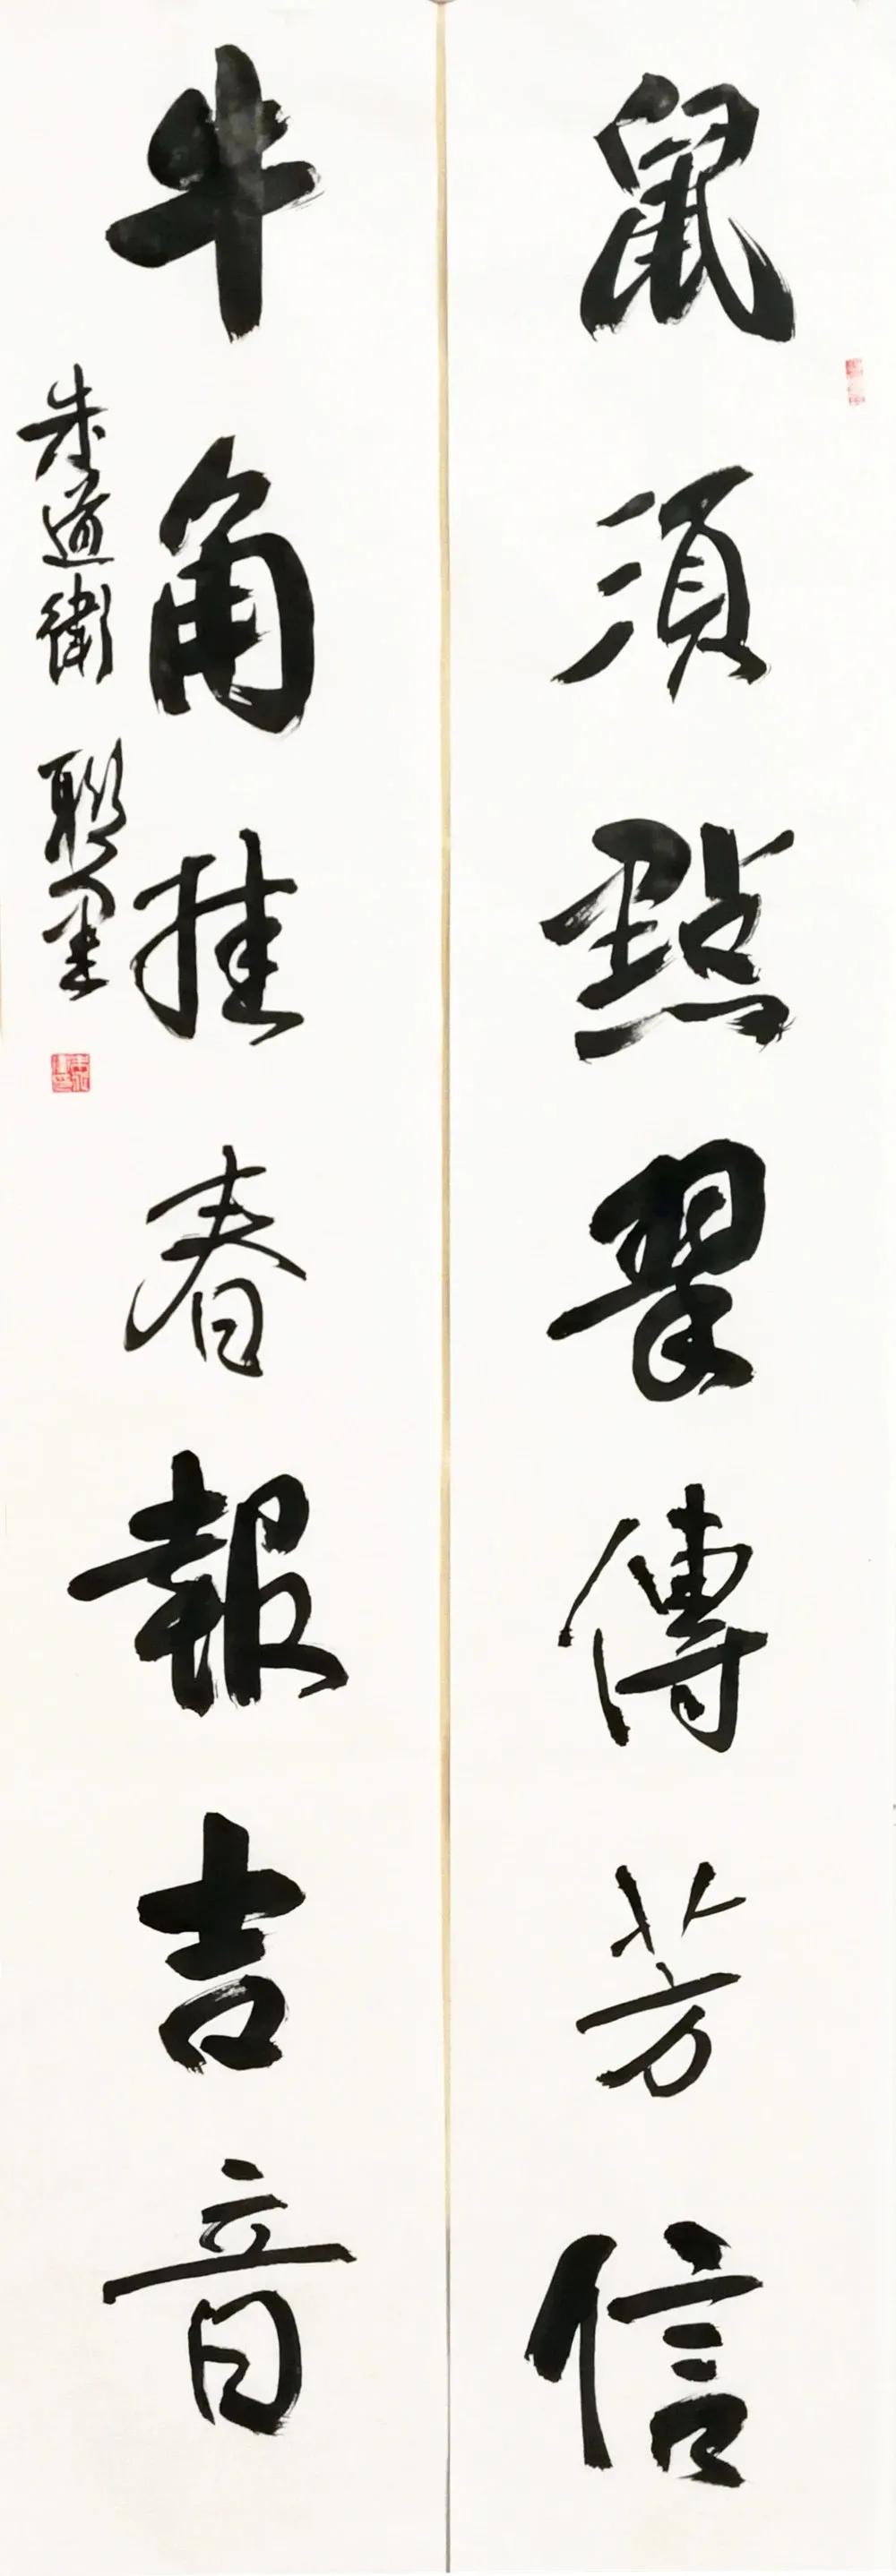 鼠須點翠傳芳信
牛角挂春報吉音
朱道衛 聯墨